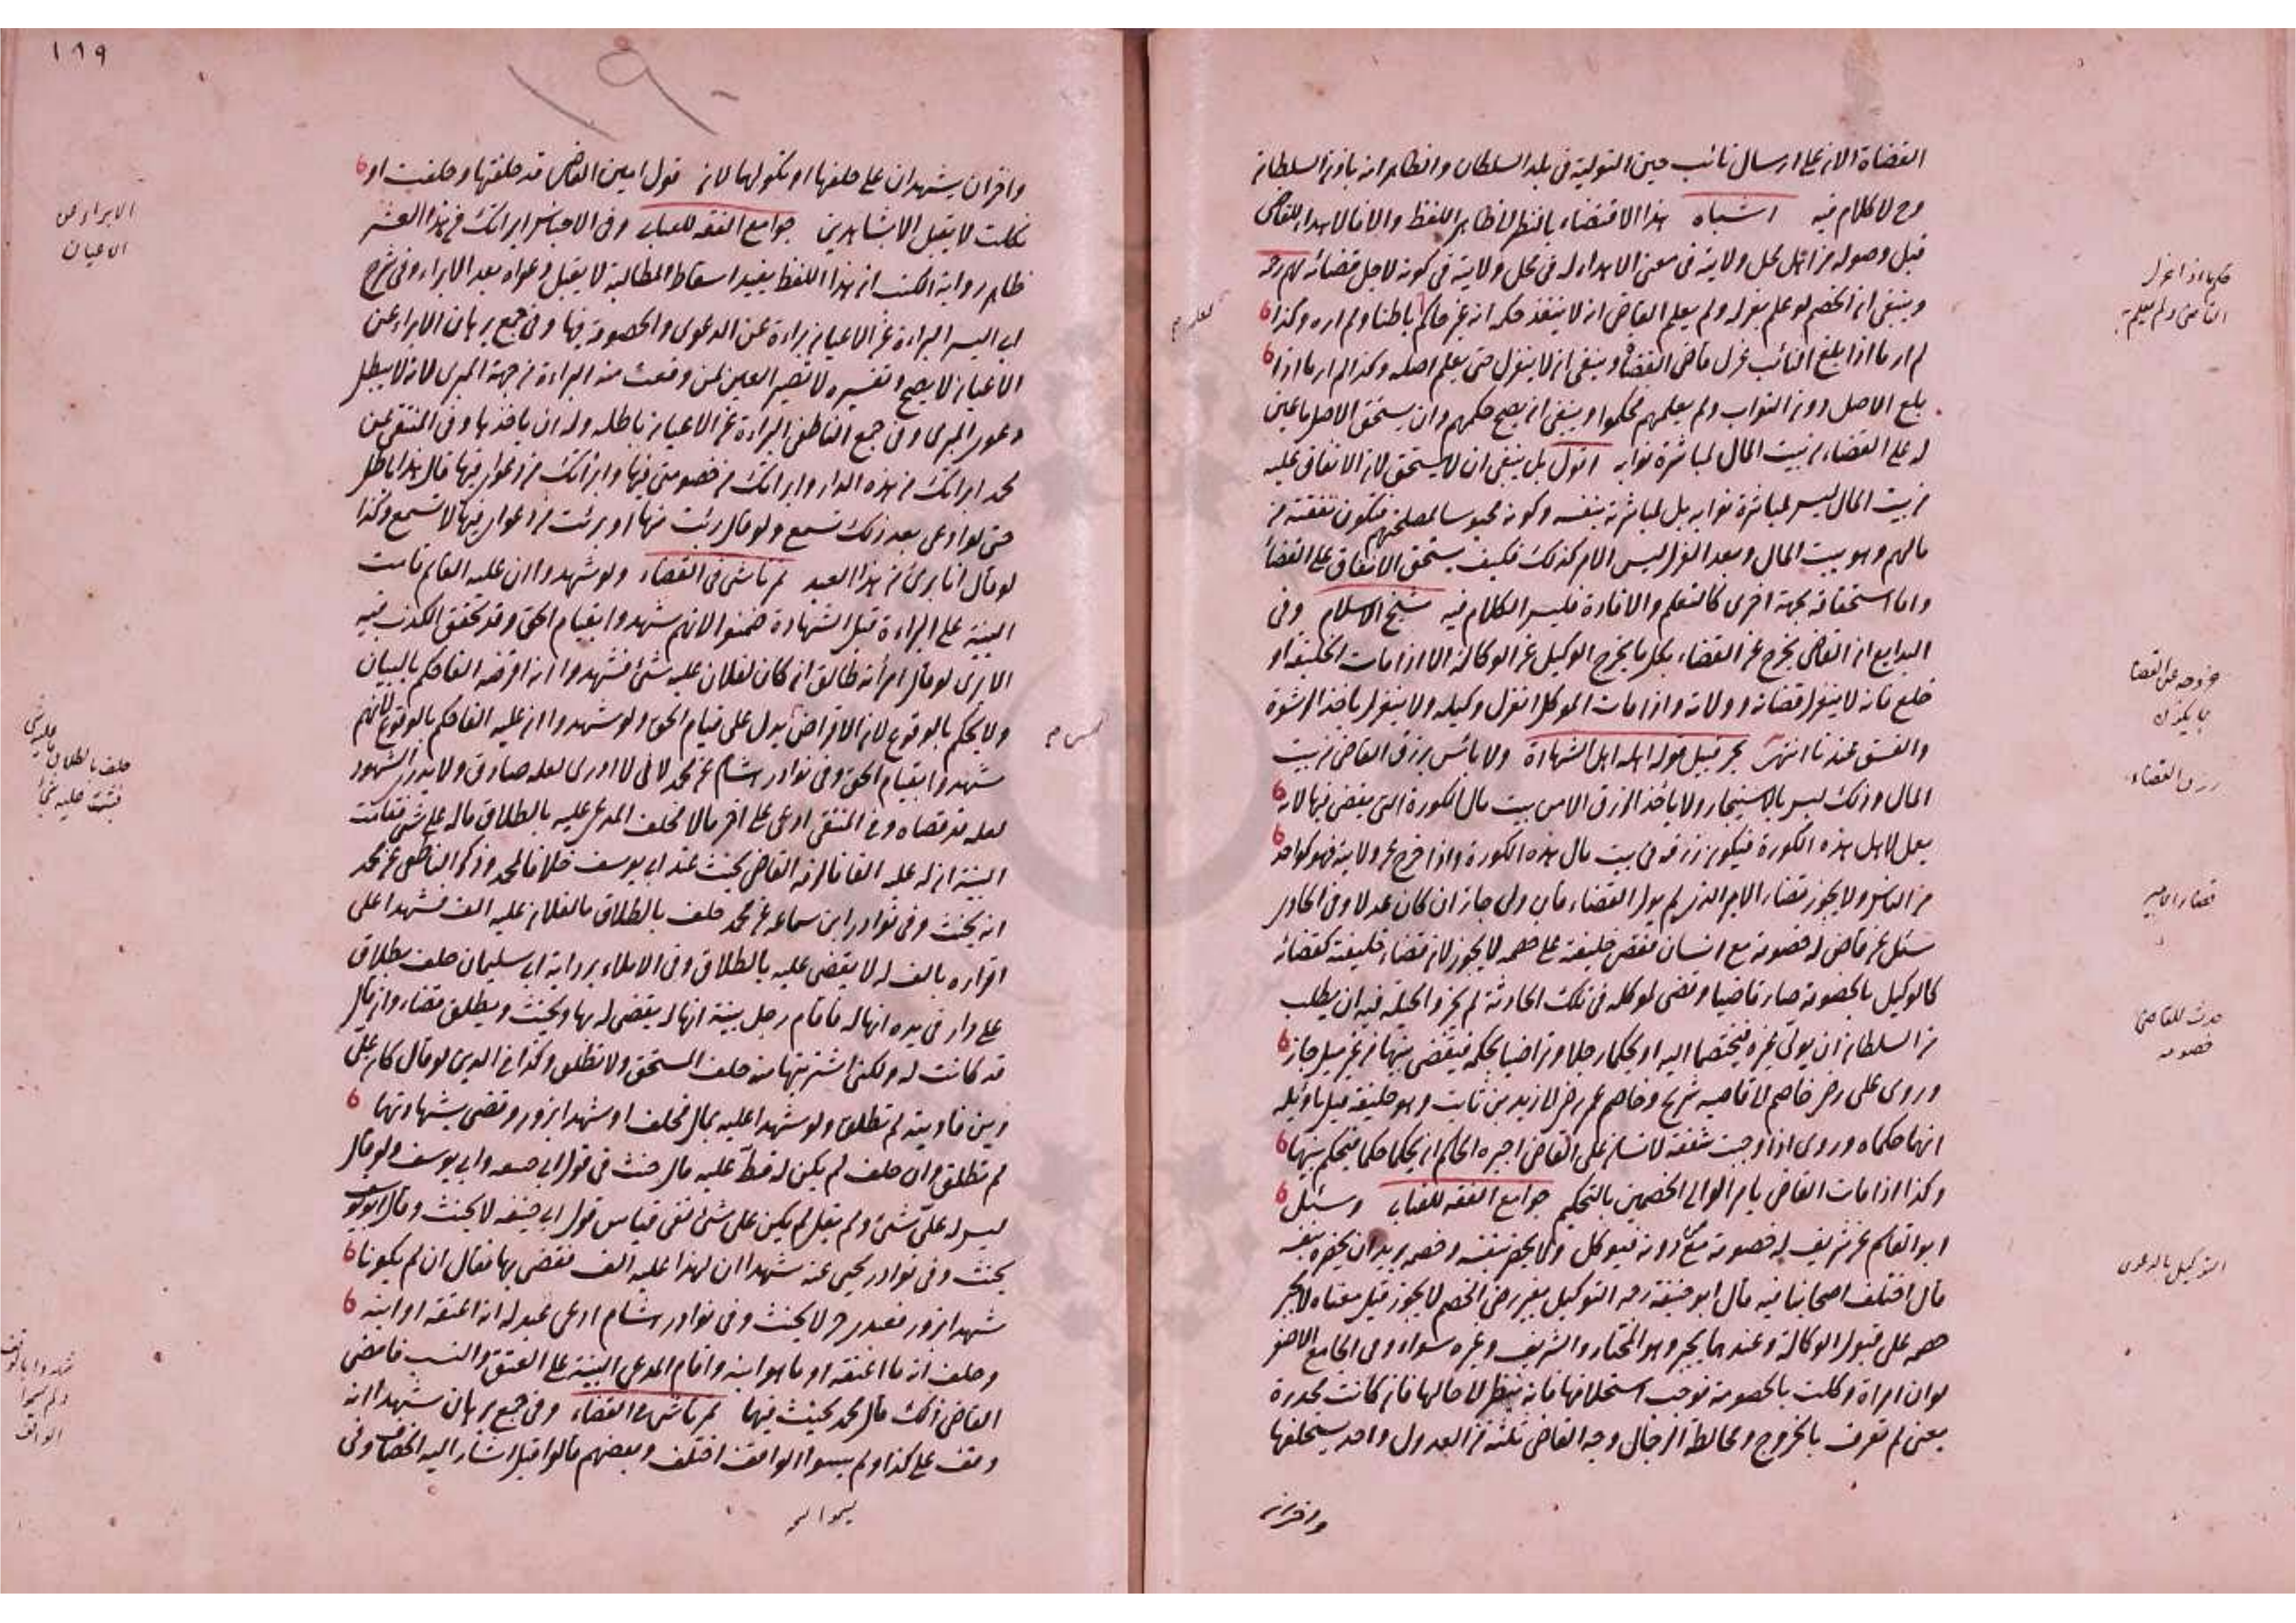 القضاة الا انه على ارسال نائب حين التولية فى بلد السلطان والظاهر انه باذن السلطان
وح لا كلام فيه اشباه هذا الاقتضاء بالنظر لظاهر اللفظ والا فالاهداء للقاضى
قبل وصوله من اهل محل ولايته فى معنى الاهداء له فى محل ولايته فى كونه لاجل قضائه
وينبغى ان الخصم لو علم بعزله ولم يعلم القاضى انه لا ينفذ حكمه انه غير حاكم باطنا ولم اره وكذا
لم ار ما اذا بلغ النائب عزل قاضى القضاة وينبغى ان لا ينعزل حتى يعلم اصله وكذا لم ار ما اذا
بلغ الاصل دون النواب ولم يعلمهم فحكموا وينبغى ان يصح حكمهم وان يستحق الاصل ما عين
له على القضاء من بيت المال لمباشرة نوابه اقول بل ينبغى ان لا يستحق لان الانفاق عليه
من بيت المال ليس لمباشرة نوابه بل لمباشرته بنفسه وكونه محبوسا لمصلحتهم فتكون نفقته من
مالهم وهو بيت المال وبعد العزل ليس الامر كذلك فكيف يستحق الانفاق على القضاء
واما استحقاقه بجهة اخرى كالتعلم والافادة فليس الكلام فيه شيخ الاسلام وفى
البدايع ان القاضى يخرج عن القضاء بكل ما يخرج الوكيل عن الوكالة الا اذا مات الخليفة او
خلع فانه لا ينعزل قضاته وولاته واذا مات الموكل انعزل وكيله ولا ينعزل باخذ الرشوة
والفسق عندنا انتهى بحر قبيل قوله اهله اهل الشهادة ولا باس برزق القاضى من بيت
المال وذلك ليس بالاستيجار ولا ياخذ الرزق الا من بيت مال الكورة التى يقضى فيها لانه
يعمل لاهل هذه الكورة فيكون رزقه فى بيت مال هذه الكورة واذا خرج عن ولايته فهو كواحد
من الناس ولا يجوز قضاء الامير الذى لم يول القضاء فان ولى جاز ان كان عدلا وفى الحاوى
سئل عن قاض له خصومة مع انسان فقضى خليفته على خصمه لا يجوز لان قضاء خليفته كقضائه
كالوكيل بالخصومة صار قاضيا وقضى لموكله فى تلك الحادثة لم يجز والحيلة فيه ان يطلب
من السلطان ان يولى غيره فيختصما اليه او يحكما رجلا وتراضيا بحكمه فيقضى بينهما من غير ميل جاز
وروى على رضى خاصم الى قاضيه شريح وخاصم عمر رضى الى زيد بن ثابت وهو خليفة قيل تاويله
انهما حكماه وروى اذا وجبت شفعة لانسان على القاضى اجبره الحاكم ان يحكما حكما فيحكم بينهما
وكذا اذا مات القاضى يامر الوالى الخصمين بالتحكيم جوامع الفقه للعتابى وسئل
ابو القاسم عن شريف له خصومة مع دونه فيوكل ولا يحضر بنفسه وخصمه يريد ان يحضره بنفسه
قال اختلف اصحابنا فيه قال ابو حنيفة رحمه التوكيل بغير رضى الخصم لا يجوز قيل معناه لا يجبر
خصمه على قبول الوكالة وعندهما يجبر وهو المختار والشريف وغيره سواء وفى الجامع الاصغر
لو ان امراة وكلت بالخصومة فوجب استحلافها فانه ينظر الى حالها فان كانت مخدرة
يعنى لم تعرف بالخروج ومخالطة الرجال وجه القاضى ثلثة من العدول واحد يستحلفها
واخران
حكم ما اذا عزل
القاضى ولم يعلم
خروجه عن القضا
رزق القضاء
قضاء الامير
حدث للقاضى
خصومة
التوكيل بالدعوى
١٨٩
١٩٠
واخران يشهدان على حلفها او نكولها لان قول امين القاضى قد حلفتها وحلفت او
نكلت لا يقبل الا بشاهدين جوامع الفقه للعتابى وفى الاجناس ابراتك من هذا العشر
ظاهر رواية الكتب ان هذا اللفظ يفيد اسقاط المطالبة لا يقبل دعواه بعد الابراء وفى شرح
ابى اليسر البراءة عن الاعيان براءة عن الدعوى والخصومة فيها وفى جمع برهان الابراء عن
الاعيان لا يصح وتفسيره لا تصير العين لمن وقعت منه البراءة من جهة المبرى لانه لا يبطل
دعوى المبرى وفى جمع الناطفى البراءة عن الاعيان باطلة وله ان ياخذها وفى المنتقى عن
محمد ابراتك من هذه الدار وابراتك من خصومتى فيها وابراتك من دعواى فيها قال هذا باطل
حتى لو ادعى بعد ذلك تسمع ولو قال برئت منها او برئت من دعواى فيها لا تسمع وكذا
لو قال انا برئ من هذا العبد تمرتاشى فى القضاء ولو شهدوا ان عليه الفا ثم قامت
البينة على البراءة قبل الشهادة ضمنوا لانهم شهدوا بقيام الحق وقد تحقق الكذب فيه
الا ترى لو قال امراته طالق ان كان لفلان عليه شئ فشهدوا انه اقرضه الفا حكم بالبيان
ولا يحكم بالوقوع لان الاقراض يدل على قيام الحق ولو شهدوا ان عليه الفا حكم بالوقوع لانهم
شهدوا بقيام الحق وفى نوادر هشام عن محمد لا لانى لا ادرى لعله صادق ولا يدرى الشهود
لعله قد قضاه وفى المنتقى ادعى على اخر مالا فحلف المدعى عليه بالطلاق ماله على شئ فقامت
البينة ان له عليه الفا فالزمه القاضى يحنث عند ابى يوسف خلافا لمحمد وذكر الناطفى عن محمد
انه يحنث وفى نوادر ابن سماعه عن محمد حلف بالطلاق ما لفلان عليه الف فشهدا على
اقراره بالف له لا يقضى عليه بالطلاق وفى الاملاء برواية ابى سليمان حلف بطلاق
على دار فى يده انها له فاقام رجل بينة انها له يقضى له بها ويحنث ويطلق قضاء وان قال
قد كانت له ولكنى اشتريتها منه حلف المستحق ولا تطلق وكذا فى الدين لو قال كان على
دين فاديته لم تطلق ولو شهدا عليه بمال فحلف او شهدا بزور وقضى بشهادتهما
لم تطلق وان حلف لم يكن له قط عليه مال حنث فى قول ابى حنيفه وابى يوسف ولو قال
ليس له على شئ ولم يقل لم يكن على شئ ففى قياس قول ابى حنيفة لا يحنث وقال ابو يوسف
يحنث وفى نوادر يحيى عنه شهدا ان لهذا عليه الف فقضى بها فقال ان لم يكونا
شهدا بزور فعبدى حر لا يحنث وفى نوادر هشام ادعى عبد له انه اعتقه او ابنه
وحلف انه ما اعتقه او ما هو ابنه واقام المدعى البينة على العتق والنسب فامضى
القاضى ذلك قال محمد يحنث فيها تمرتاشى فى القضاء وفى جمع برهان شهدا انه
وقف على كذا ولم يسموا الواقف اختلف وبعضهم قالوا قبل اشار اليه الخصاف وفى
الابراء عن
الاعيان
حلف بالطلاق ما عليه شئ
شهدوا بالوقف
ولم يسموا
الواقف